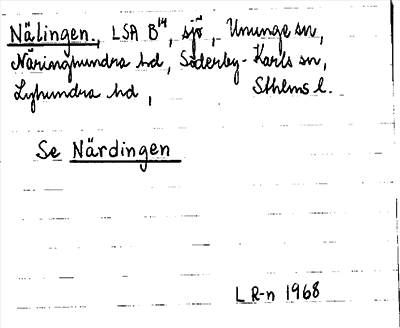 Nälingen, LSA B¹⁴, sjö, Ununge sn,
Närdinghundra hd, Söderby-Karls sn,
Lyhundra hd, Sthlms l.
Se Närdingen
L R-n 1968